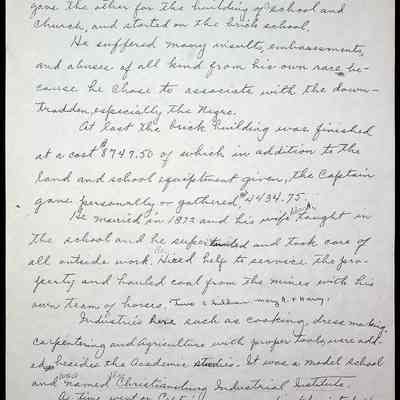 gave the other for the building of school and
Church, and started on the brick school.
He suffered many insults, embarssments,
and abuses of all kind from his own race be-
cause he chose to associate with the down-
trodden, especially the Negro.
At last the brick building was finished
at a cost $8747.50 of which in addition to the
land and school equiptment given, the Captain
gave personally or gathered $4434.75.
He married in 1872 and his wife taught in
the school and he superintended and took care of
all outside work. Hired help to service the pro-
perty and hauled coal from the mines with his
own team of horses. Two children Mary A. & Harry.
Industries here such as cooking, dress making,
carpentering and Agriculture with proper tools were add-
ed, besides the Academic studies. It was a model school
and was named Christiansburg Industrial Institute.
As time went on